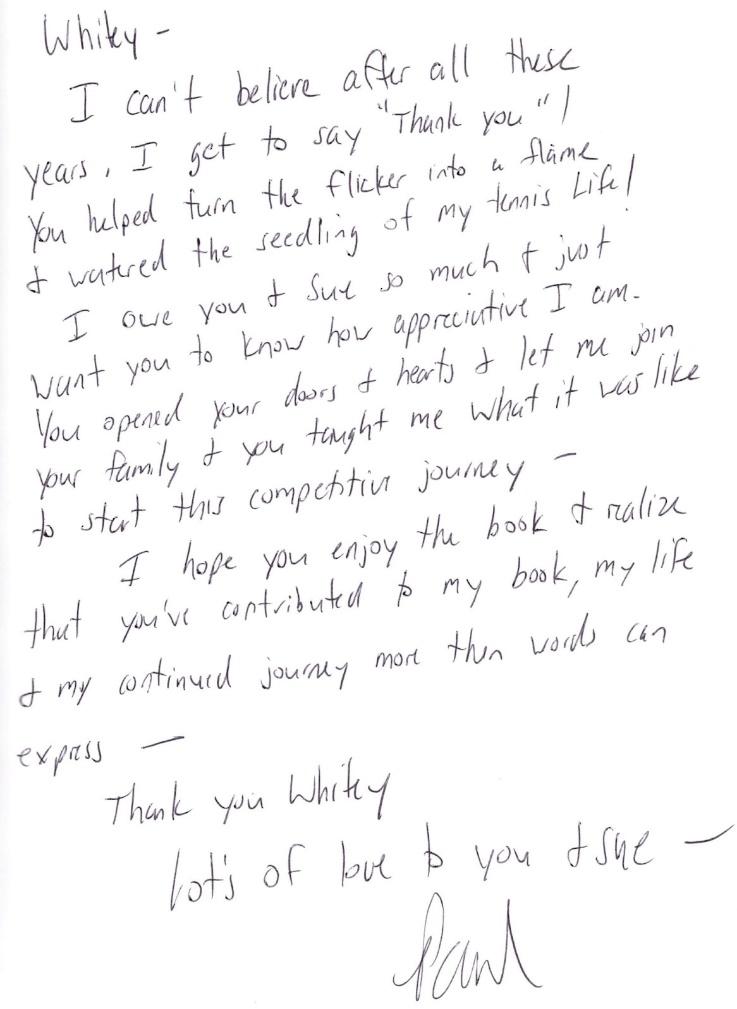 Whitey -
I can't believe after all these
years, I get to say "Thank you"!
You helped turn the flicker into a flame
& watered the seedling of my tennis Life!
I owe you & Sue so much & just
want you to know how appreciative I am.
You opened your doors & hearts & let me join
your family & you taught me what it was like
to start this competitive journey -
I hope you enjoy the book & realize
that you've contributed to my book, my life
& my continued journey more then words can
express —
Thank you Whitey
Lot's of love to you & Sue —
Paul